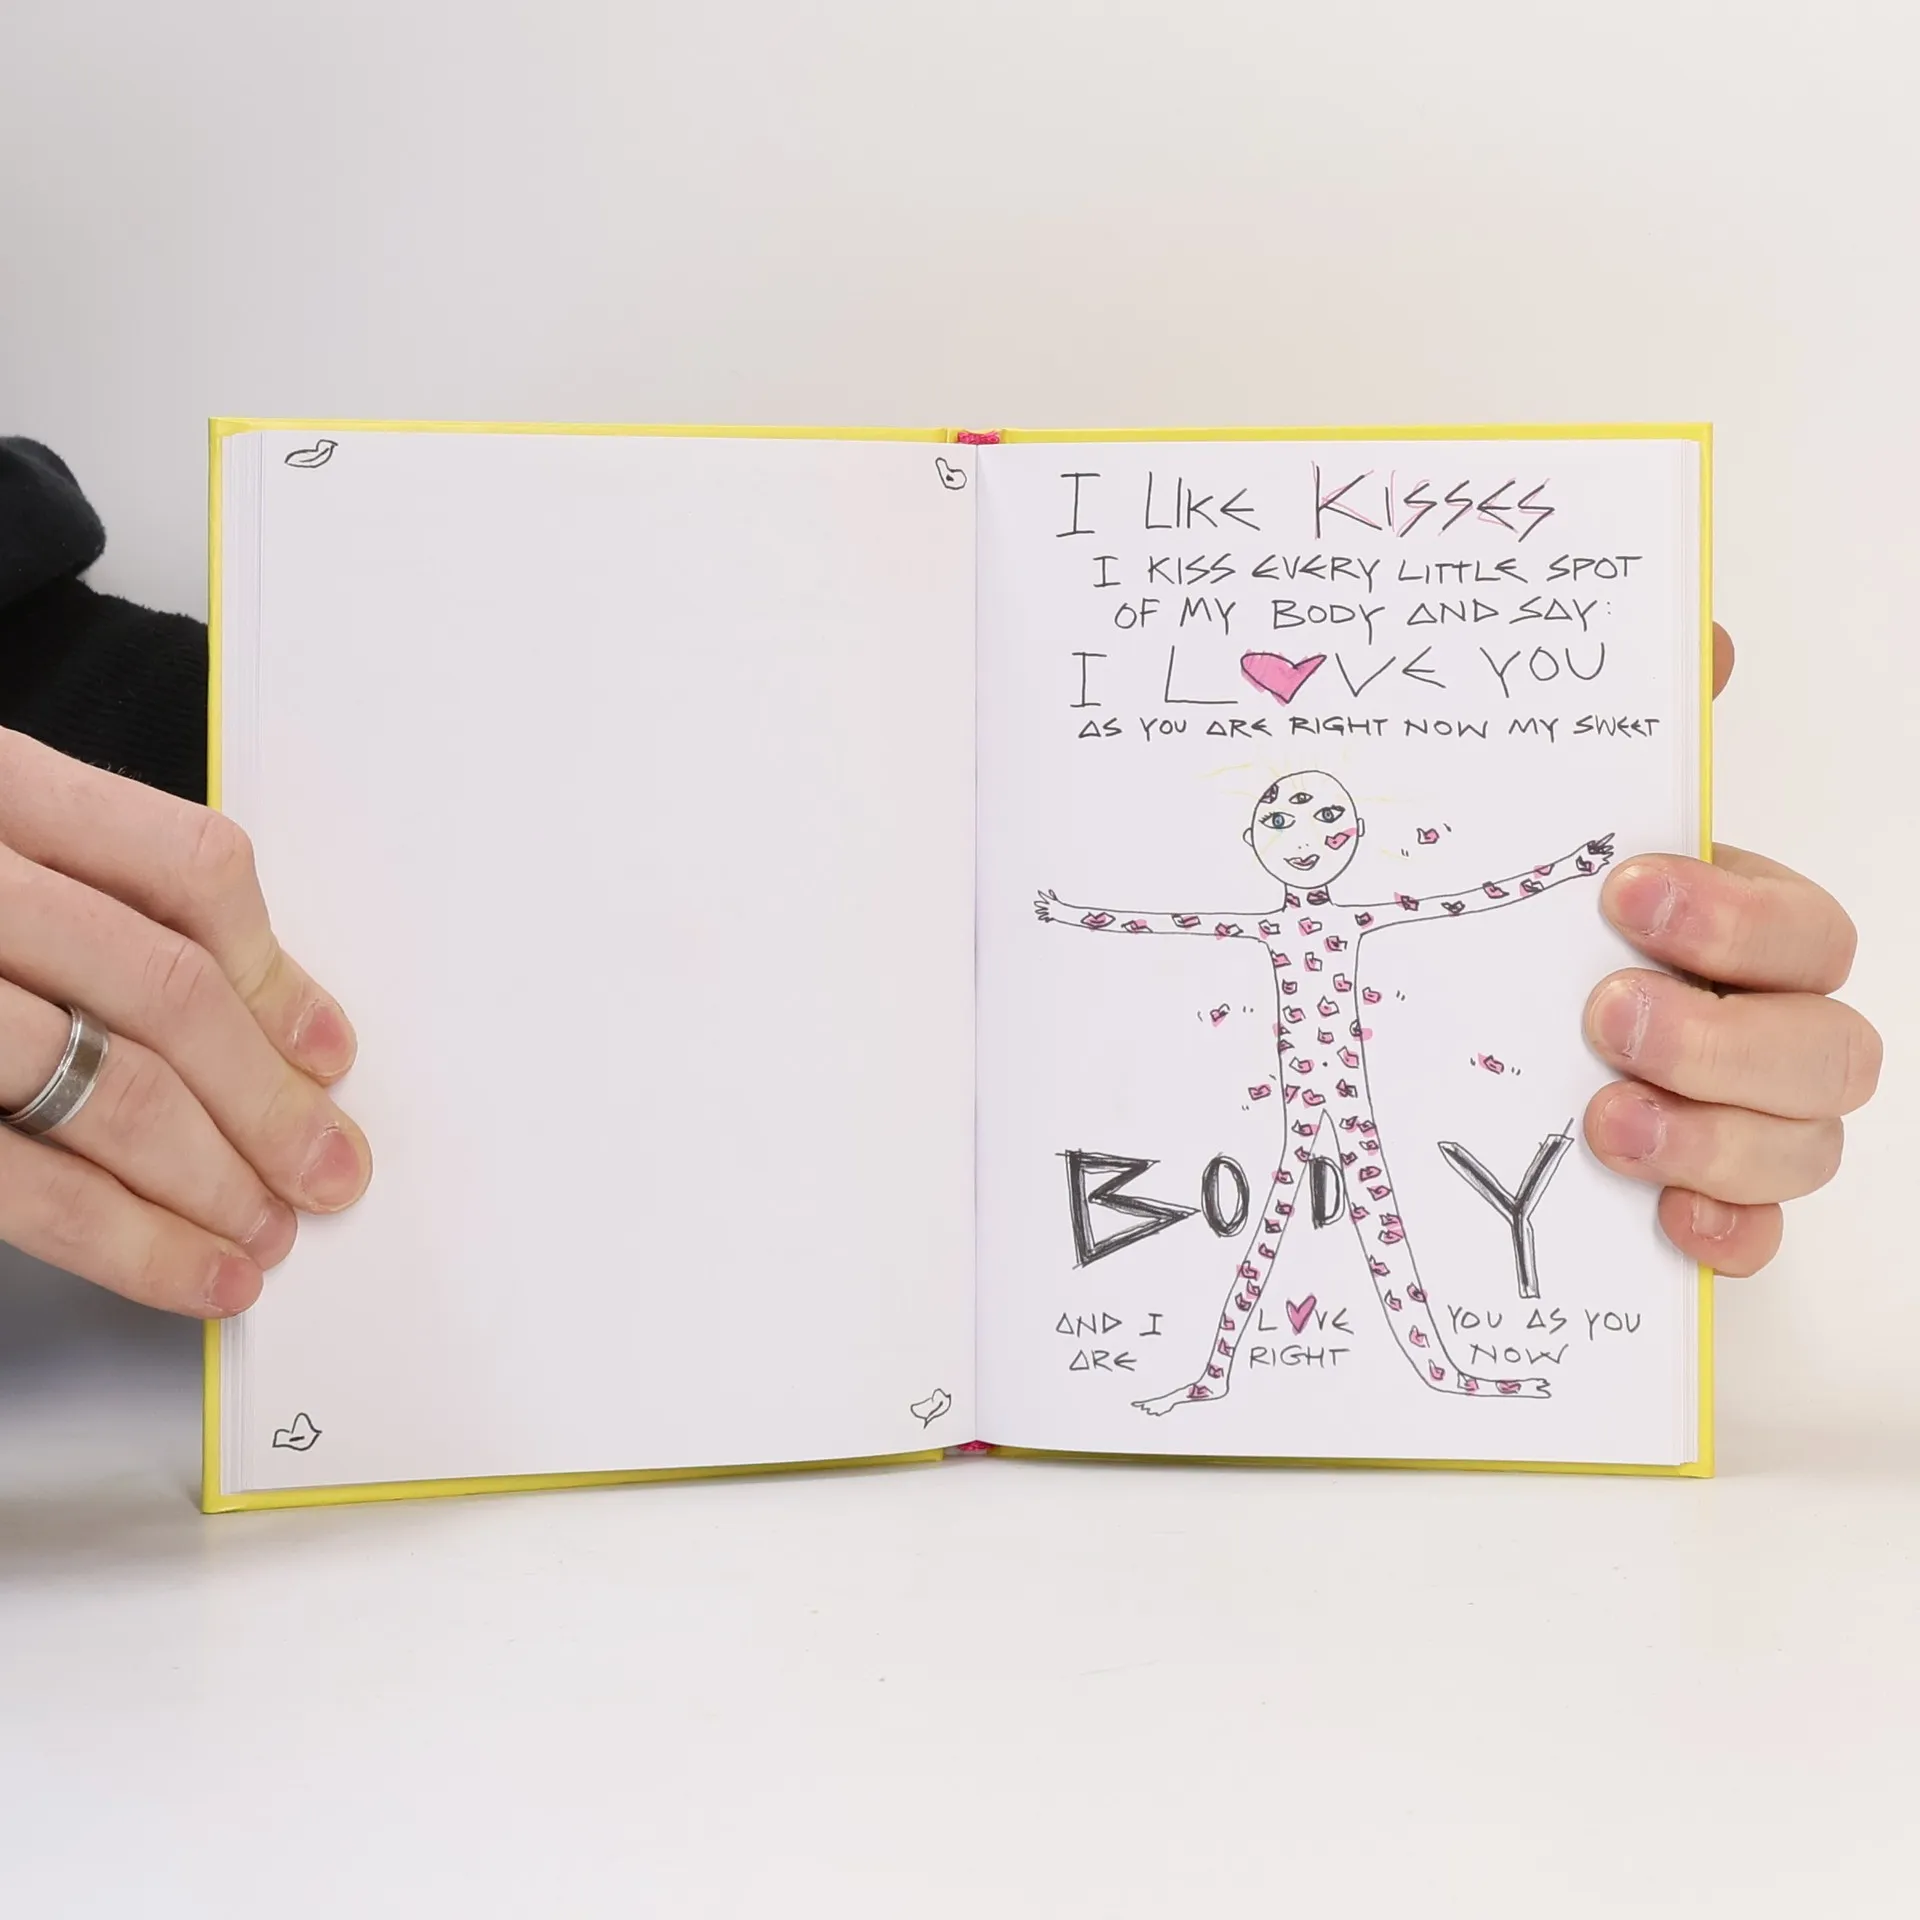 I LIKE KISSES
I KISS EVERY LITTLE SPOT
OF MY BODY AND SAY:
I LOVE YOU
AS YOU ARE RIGHT NOW MY SWEET
BODY
AND I LOVE YOU AS YOU
ARE RIGHT NOW